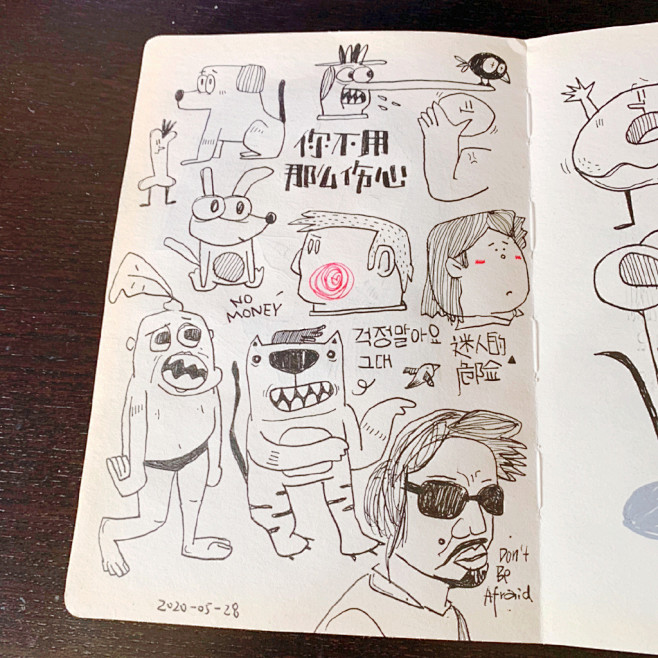 你不用
那么伤心
NO
MONEY
걱정말아요
그대
迷人的
危险
Don't
Be
Afraid
2020-05-28